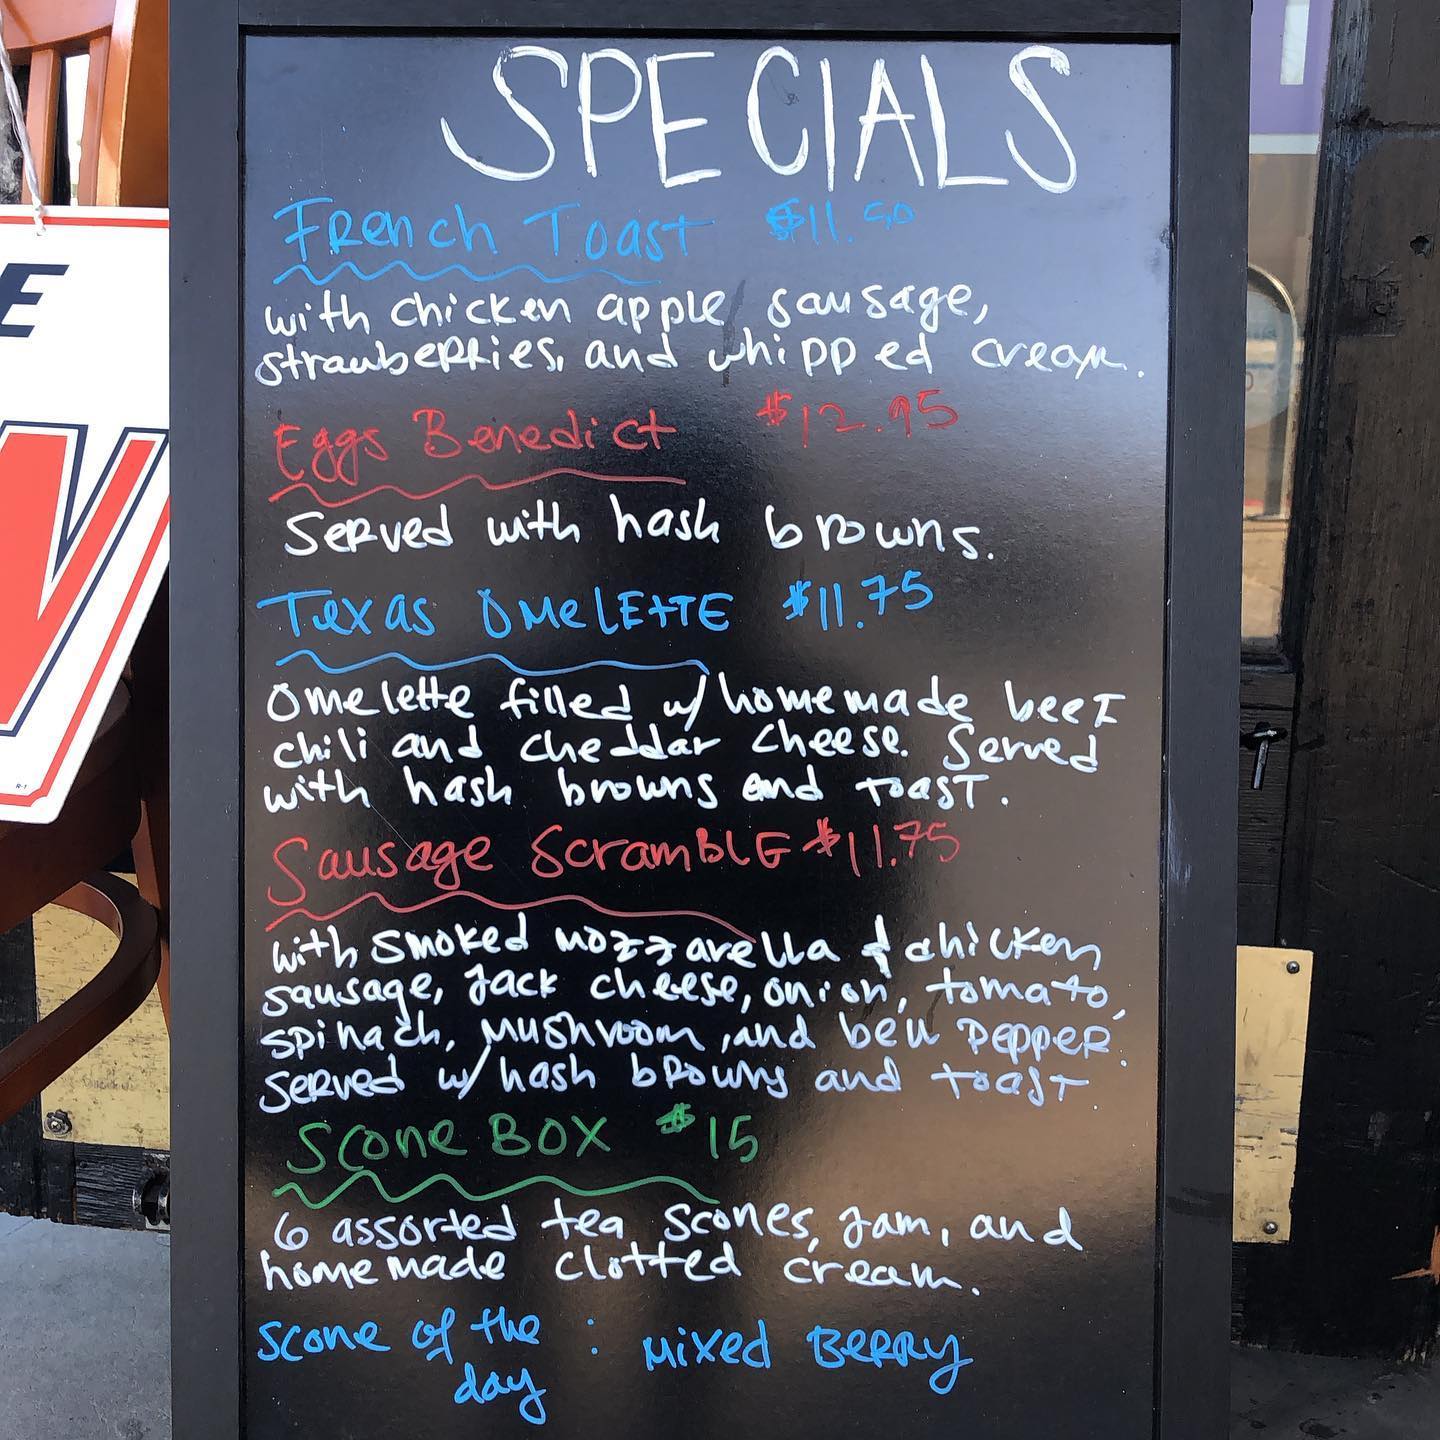 SPECIALS
French Toast $11.50
with chicken apple sausage,
strawberries, and whipped cream.
Eggs Benedict $12.95
Served with hash browns.
Texas OmeLETTE $11.75
Omelette filled w/ homemade beef
chili and cheddar cheese. Served
with hash browns and toast.
Sausage ScramBLE $11.75
with smoked mozzarella & chicken
sausage, jack cheese, onion, tomato,
spinach, mushroom, and bell pepper.
Served w/ hash browns and toast.
Scone BOX $15
6 assorted tea scones, jam, and
homemade clotted cream.
Scone of the day : Mixed Berry
E
N
R-1